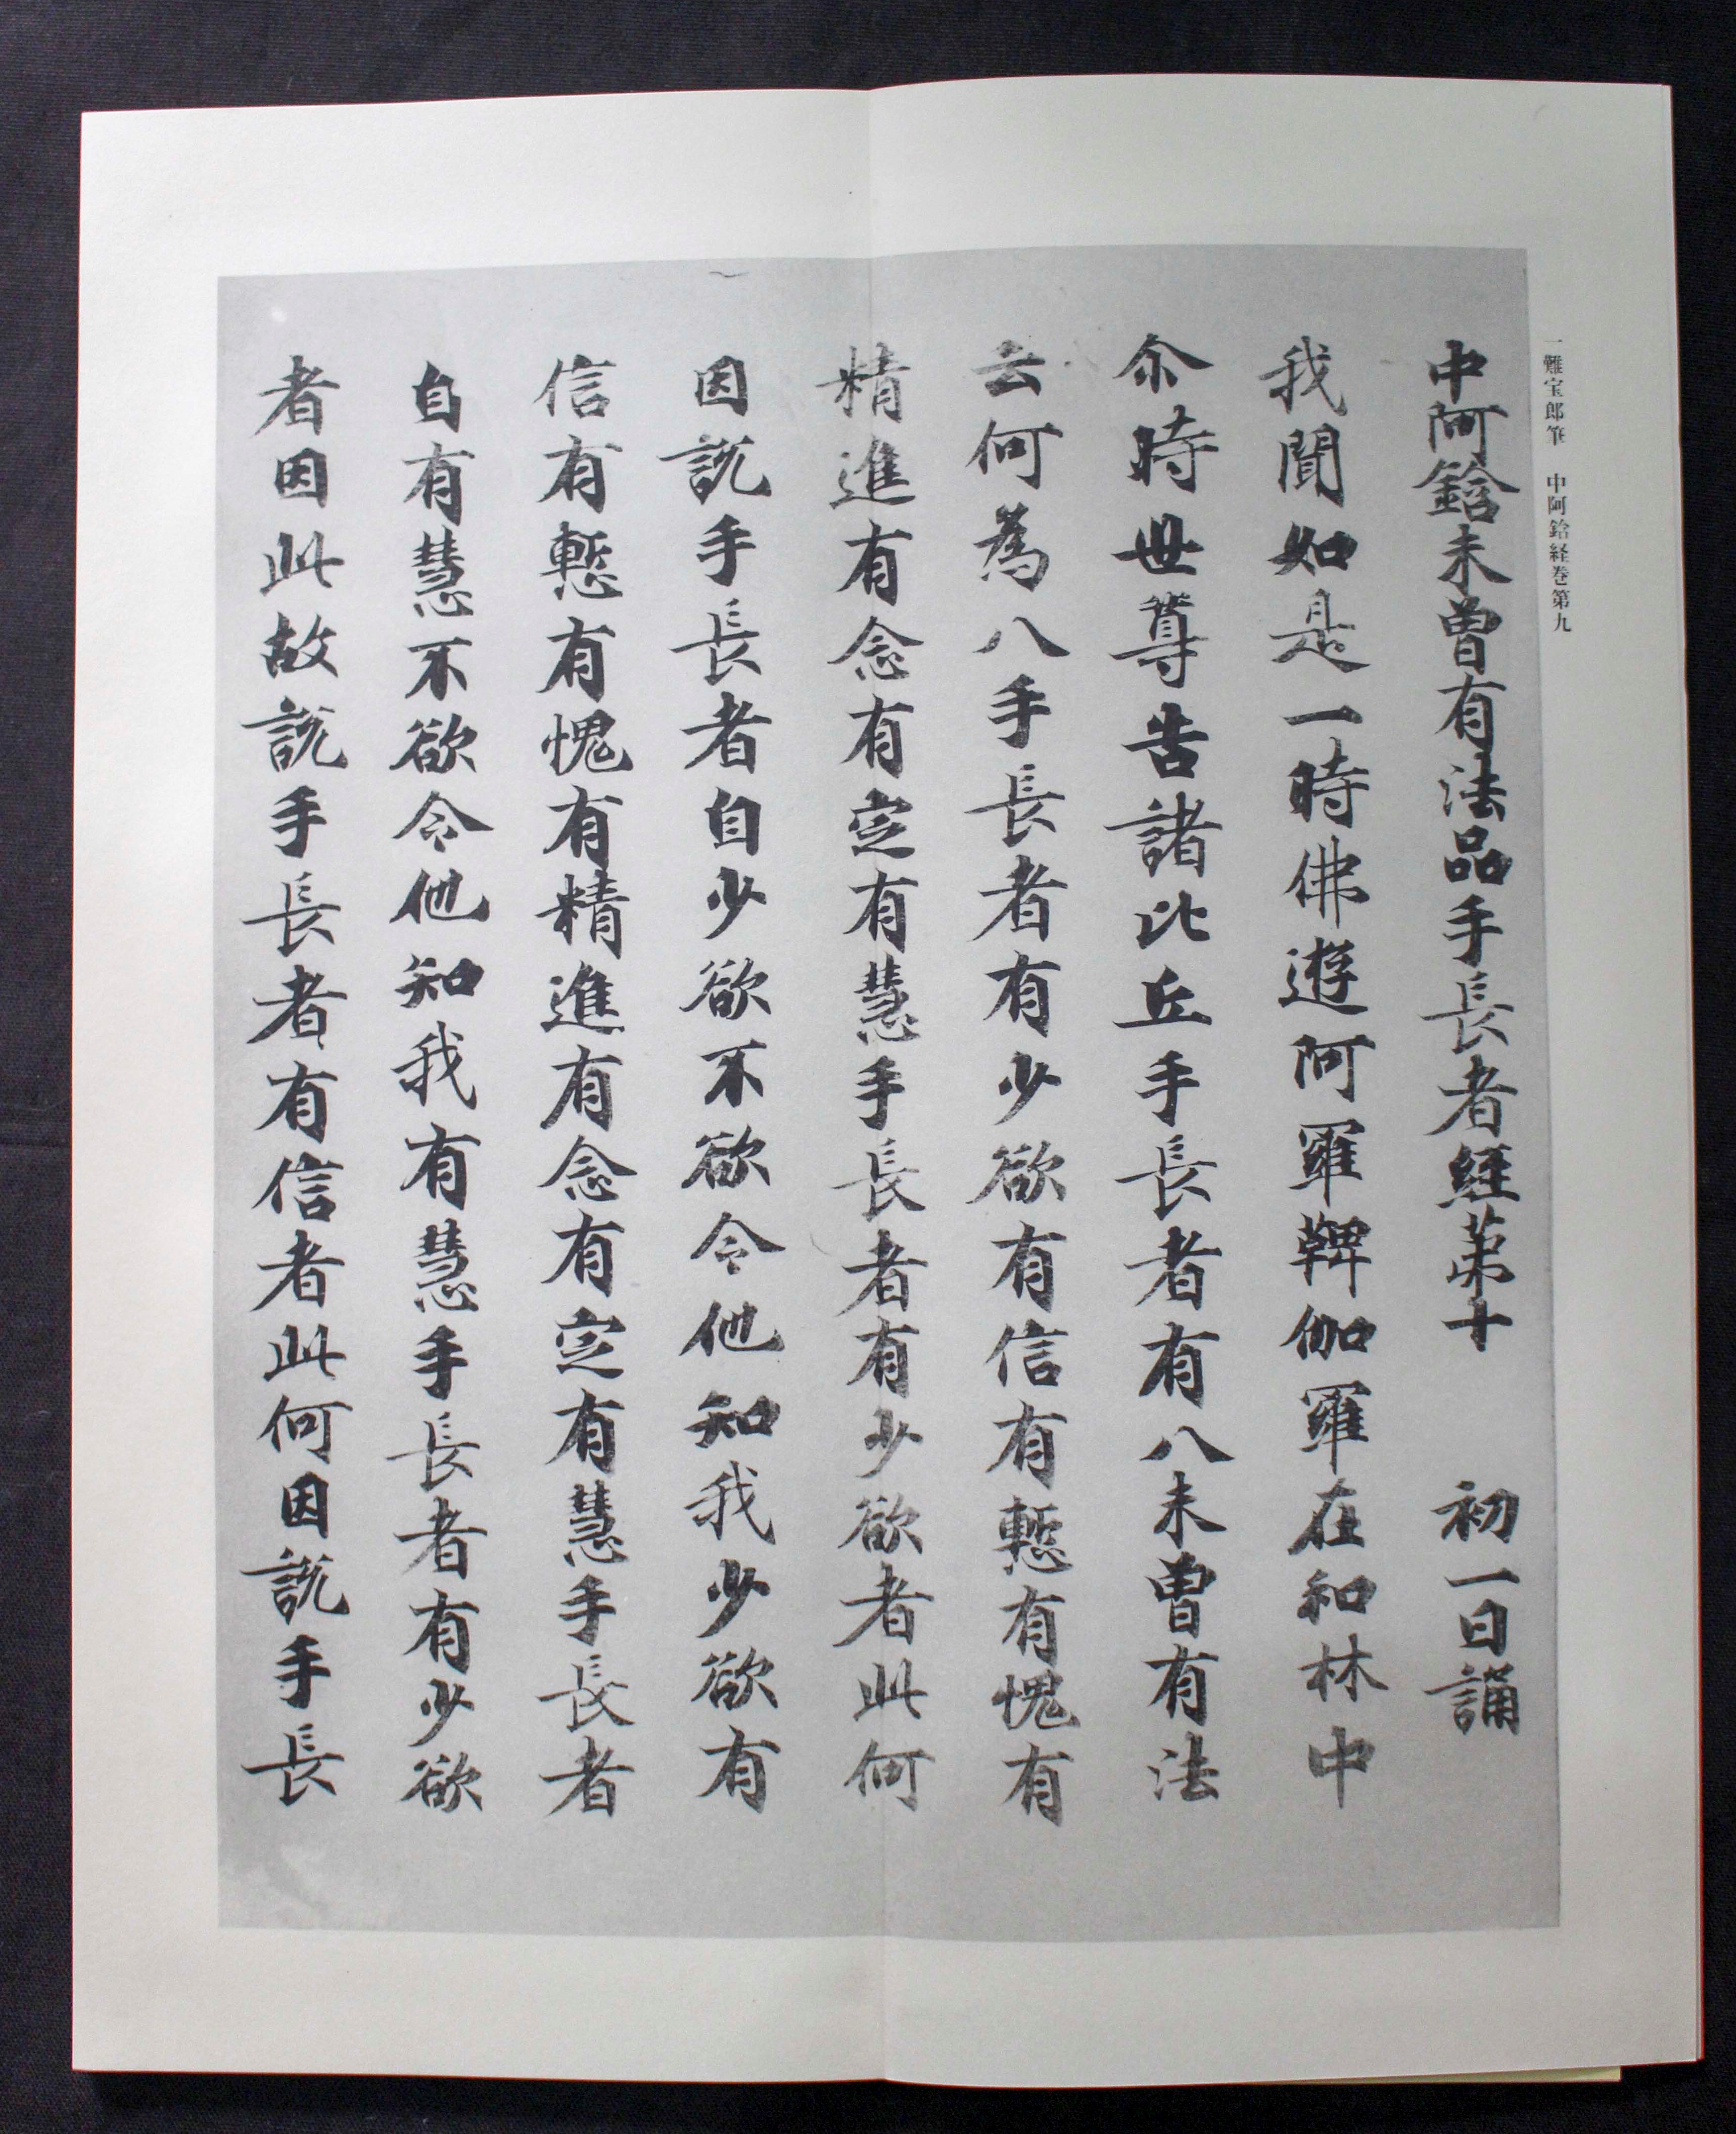 一難宝郎筆　中阿鋡経巻第九
中阿鋡未曾有法品手長者經第十　初一日誦
我聞如是一時佛遊阿羅鞞伽羅在和林中
尒時世尊告諸比丘手長者有八未曾有法
云何為八手長者有少欲有信有慙有愧有
精進有念有定有慧手長者有少欲者此何
因說手長者自少欲不欲令他知我少欲有
信有慙有愧有精進有念有定有慧手長者
自有慧不欲令他知我有慧手長者有少欲
者因此故說手長者有信者此何因說手長